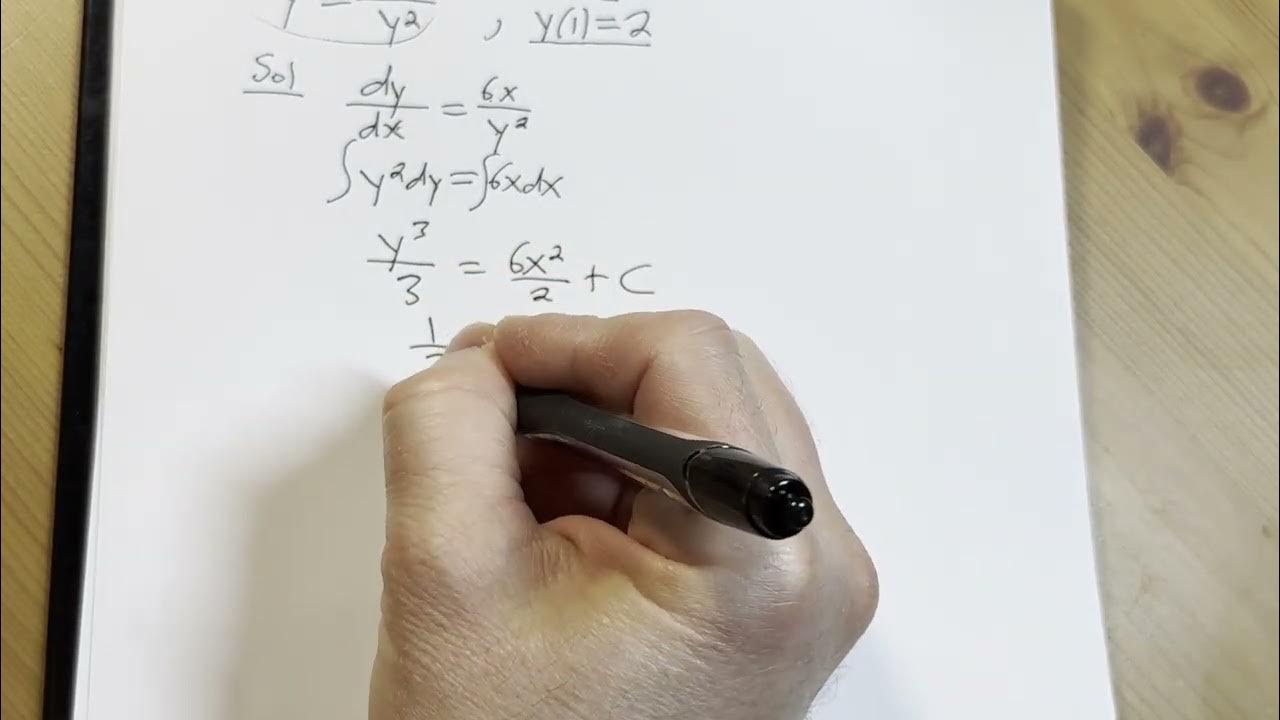 y² , y(1)=2
Sol dy/dx = 6x/y²
∫y²dy=∫6xdx
y³/3 = 6x²/2 + C
1